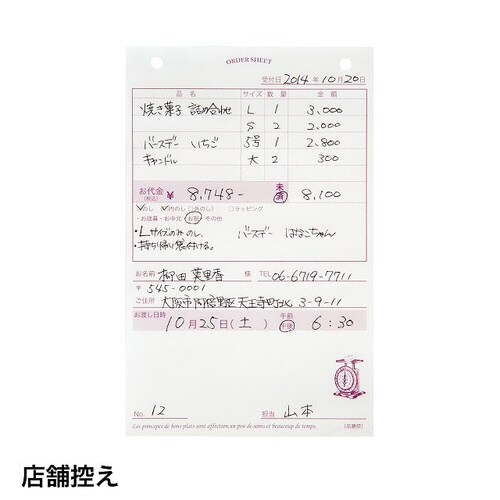 ORDER SHEET
受付日 2014年10月20日
品名 サイズ 数量 金額
焼き菓子 詰め合わせ L 1 3,000
S 2 2,000
バースデー いちご 5号 1 2,800
キャンドル 大 2 300
お代金(税込) ¥ 8,748- 未 済 8,100
のし 内のし 外のし ラッピング
・お歳暮・お中元 お祝 その他
・Lサイズのみのし、 バースデー はなこちゃん
・持ち帰り袋付ける。
お名前 柳田 英里香 様 TEL 06-6719-7711
〒 545-0001
ご住所 大阪市阿倍野区天王寺町北 3-9-11
お渡し日時 10月25日(土) 午前 午後 6:30
No. 12 担当 山本
Les principes de bons plats sont affection un peu de soins et beaucoup de temps. (店舗控)
店舗控え